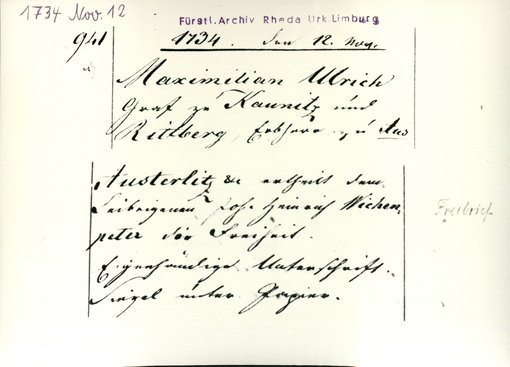 1734 Nov. 12
Fürstl. Archiv Rheda Urk. Limburg
941
1734. den 12. Nov.
Maximilian Ulrich
Graf zu Kaunitz und
Rittberg, Erbherr zu Aus
Austerlitz &c ertheilt dem
Leibeigenen Joh. Heinrich Wichen,
peter die Freiheit.
Freibrief
Eigenhändige Unterschrift.
Siegel unter Papier.